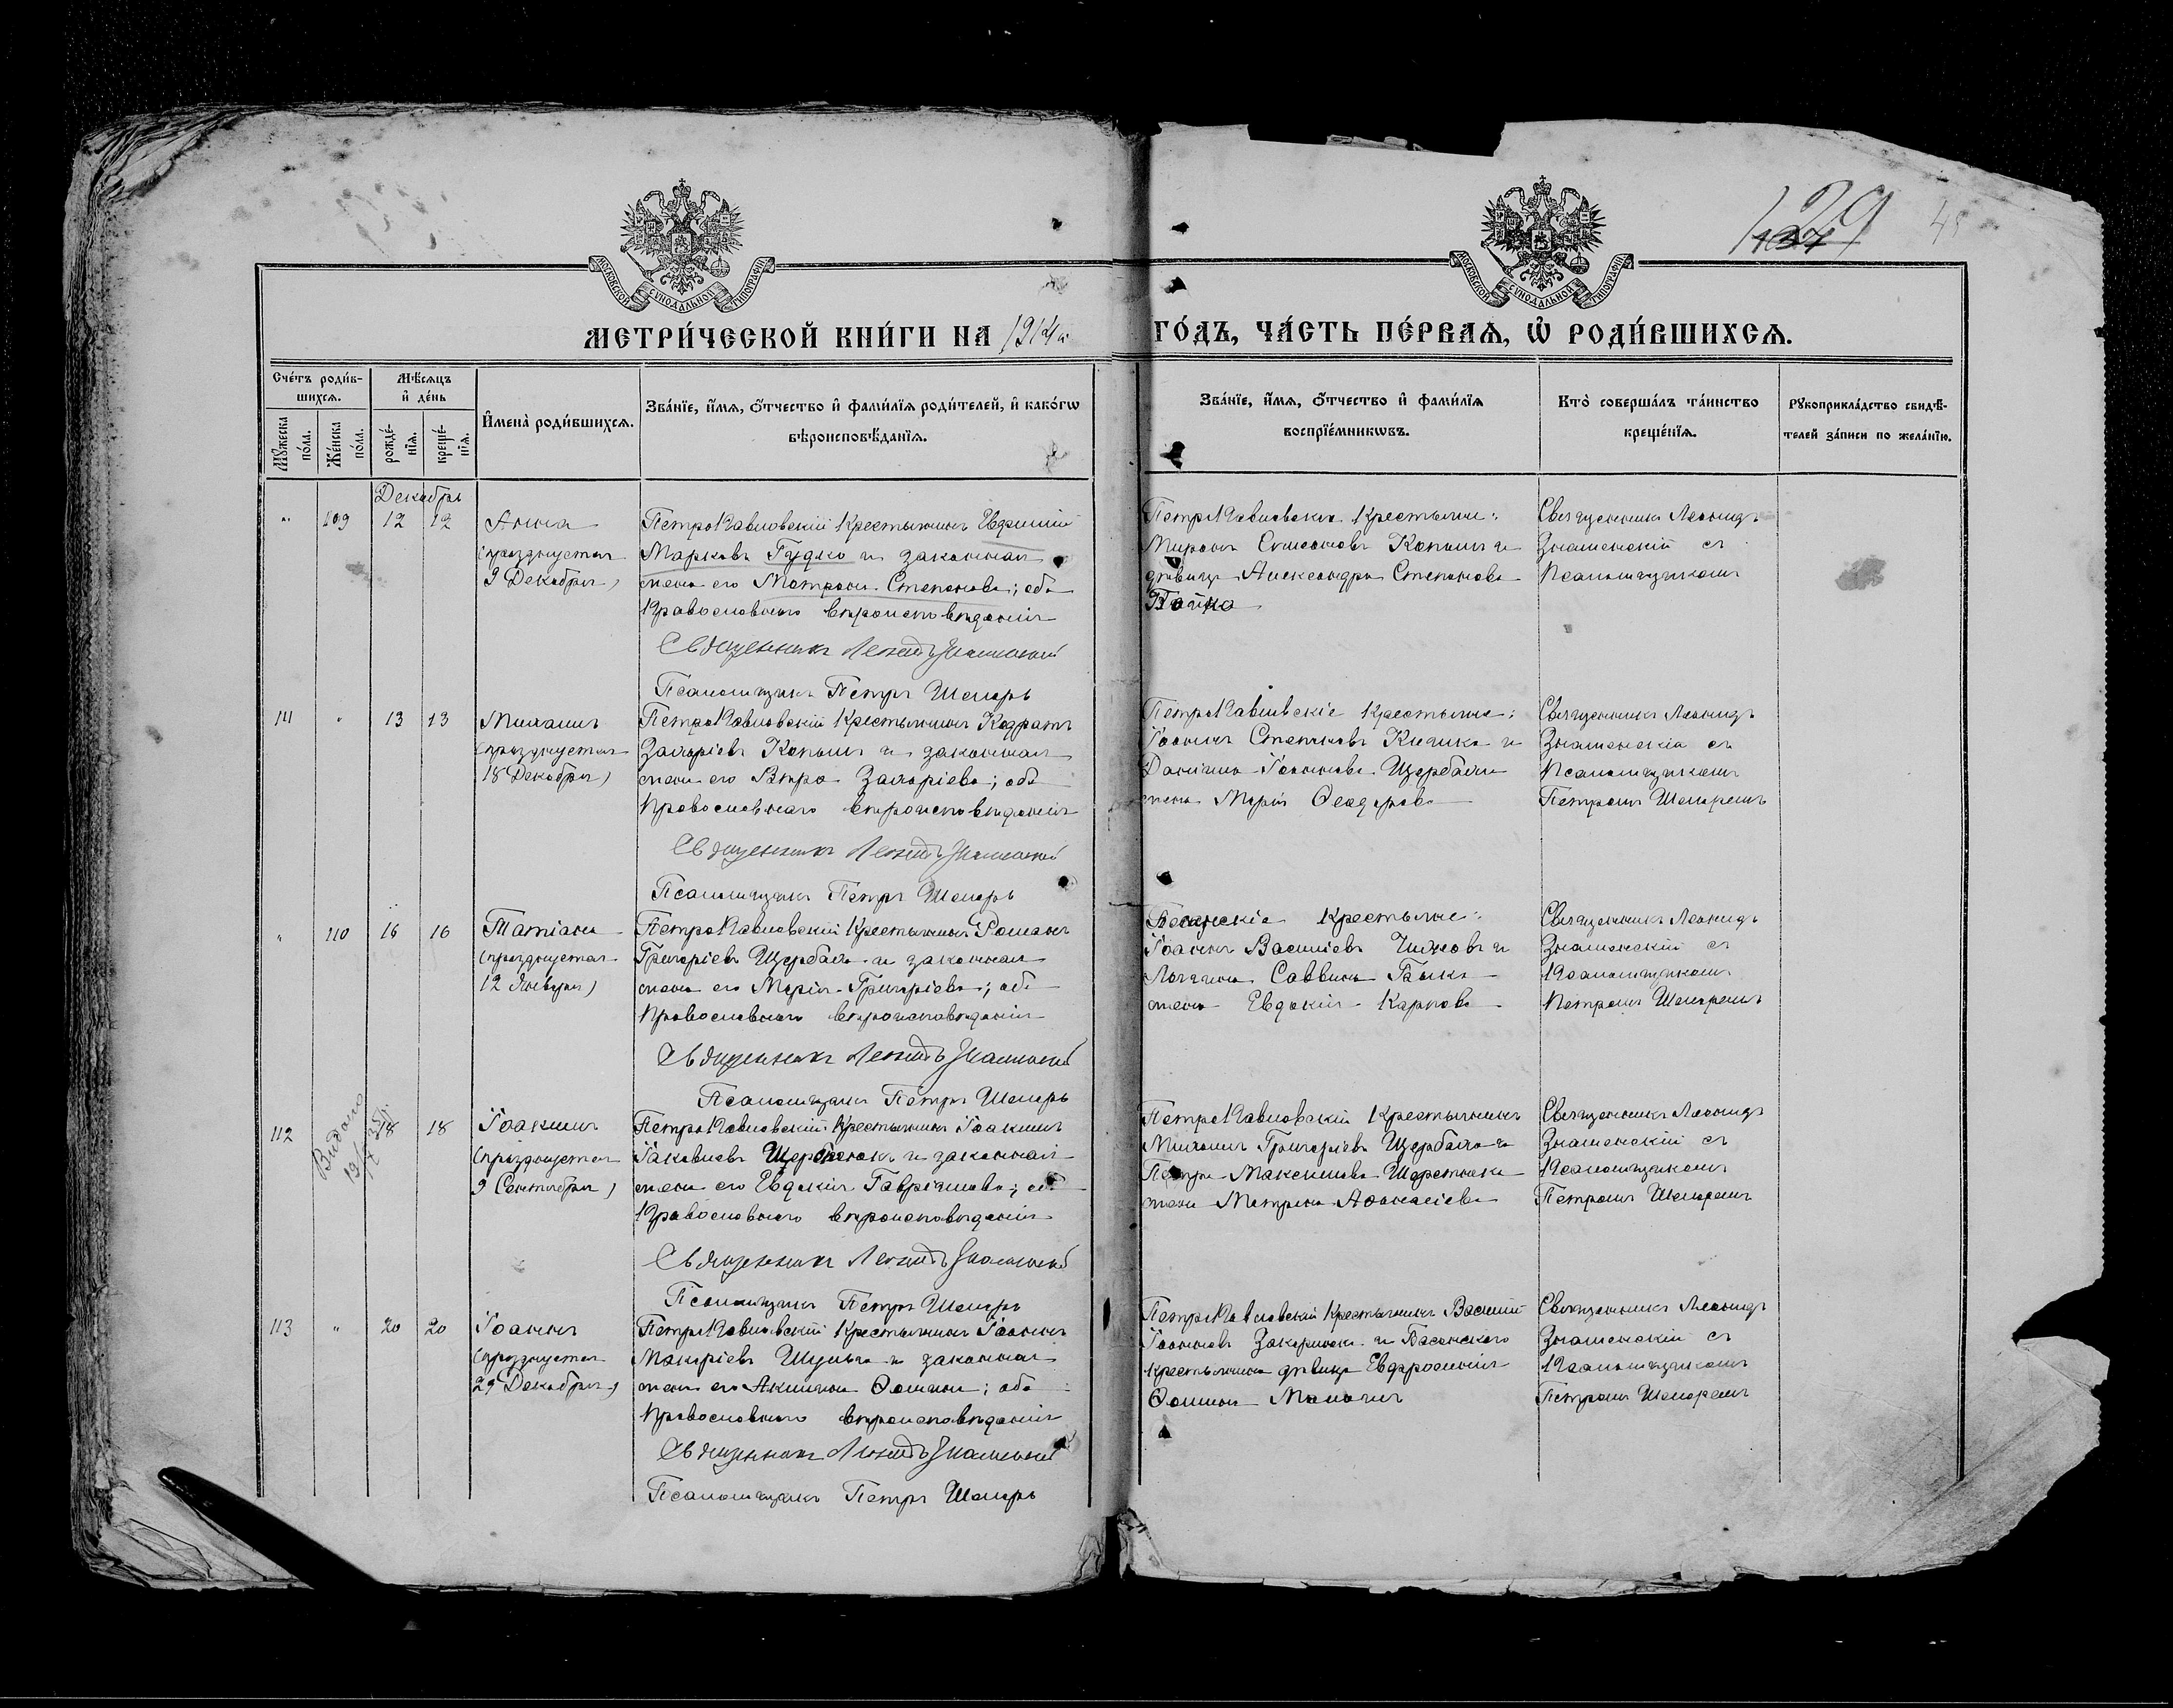 129
45
МОСКОВСКОЙ СѴНОДАЛЬНОЙ ТИПОГРАФІИ
МОСКОВСКОЙ СѴНОДАЛЬНОЙ ТИПОГРАФІИ
МЕТРИ́ЧЕСКОЙ КНИ́ГИ НА 1914 ГО́ДЪ, ЧА́СТЬ ПЕ́РВАЯ, Ѿ РОДИ́ВШИХСЯ.
Сче́тъ роди́в-
шихся.
Мꙋ́жеска по́ла.
Же́нска по́ла.
Мѣ́сяцъ и҆ де́нь
рожде́-
нїя.
креще́-
нїя.
И҆мена̀ роди́вшихся.
Зва́нїе, и҆́мя, ѻ҆́тчество и҆ фами́лїя роди́телей, и҆ како́гѡ
вѣроисповѣ́данїя.
Зва́нїе, и҆́мя, ѻ҆́тчество и҆ фами́лїя
воспрїе́мникѡвъ.
Кто̀ соверша́лъ та́инство
креще́нїя.
Рꙋкоприкла́дство свидѣ́-
телей за́писи по жела́нїю.
Декабрь
" 109 12 12
Анна
(празднуется
9 Декабря)
ПетроПавловскій крестьянинъ Евфимій
Марковъ Гудко и законная
жена его Матрона Степанова; оба
Православнаго вѣроисповѣданія
Священникъ Леонидъ Знаменскій
Псаломщикъ Петръ Шеларь
ПетроПавловскіе крестьяне:
Миронъ Симеоновъ Копылъ и
дѣвица Александра Степанова
Священникъ Леонидъ
Знаменскій съ
Псаломщикомъ
111 " 13 13
Михаилъ
(празднуется
18 Декабря)
ПетроПавловскій крестьянинъ Кодратъ
Захаріевъ Копылъ и законная
жена его Вѣра Захаріева; оба
Православнаго вѣроисповѣданія
Священникъ Леонидъ Знаменскій
Псаломщикъ Петръ Шеларь
ПетроПавловскіе крестьяне:
Іоаннъ Степановъ Кичика и
Даніила Іоаннова Щербака
жена Марія Ѳеодорова
Священникъ Леонидъ
Знаменскій съ
Псаломщикомъ
Петромъ Шеларемъ
" 110 16 16
Татіана
(празднуется
12 Января)
ПетроПавловскій крестьянинъ Романъ
Григоріевъ Щербакъ и законная
жена его Марія Григоріева; оба
Православнаго вѣроисповѣданія
Священникъ Леонидъ Знаменскій
Псаломщикъ Петръ Шеларь
крестьяне:
Іоаннъ Василіевъ и
Логгина Саввина Быка
жена Евдокія Карпова
Священникъ Леонидъ
Знаменскій съ
Псаломщикомъ
Петромъ Шеларемъ
Выдано
112 18 18
Іоакимъ
(празднуется
9 Сентября)
ПетроПавловскій крестьянинъ Іоакимъ
Іаковлевъ Щербенокъ и законная
жена его Евдокія Гавріилова; оба
Православнаго вѣроисповѣданія
Священникъ Леонидъ Знаменскій
Псаломщикъ Петръ Шеларь
ПетроПавловскій крестьянинъ
Михаилъ Григоріевъ Щербакъ и
Петра Максимова
жена Матрона Аѳанасіева
Священникъ Леонидъ
Знаменскій съ
Псаломщикомъ
Петромъ Шеларемъ
113 " 20 20
Іоаннъ
(празднуется
29 Декабря)
ПетроПавловскій крестьянинъ Іоаннъ
Макаріевъ Шульга и законная
жена его Акилина Ѳомина; оба
Православнаго вѣроисповѣданія
Священникъ Леонидъ Знаменскій
Псаломщикъ Петръ Шеларь
ПетроПавловскій крестьянинъ Василій
Іоанновъ и
крестьянина дѣвица Евфросинія
Ѳомина
Священникъ Леонидъ
Знаменскій съ
Псаломщикомъ
Петромъ Шеларемъ